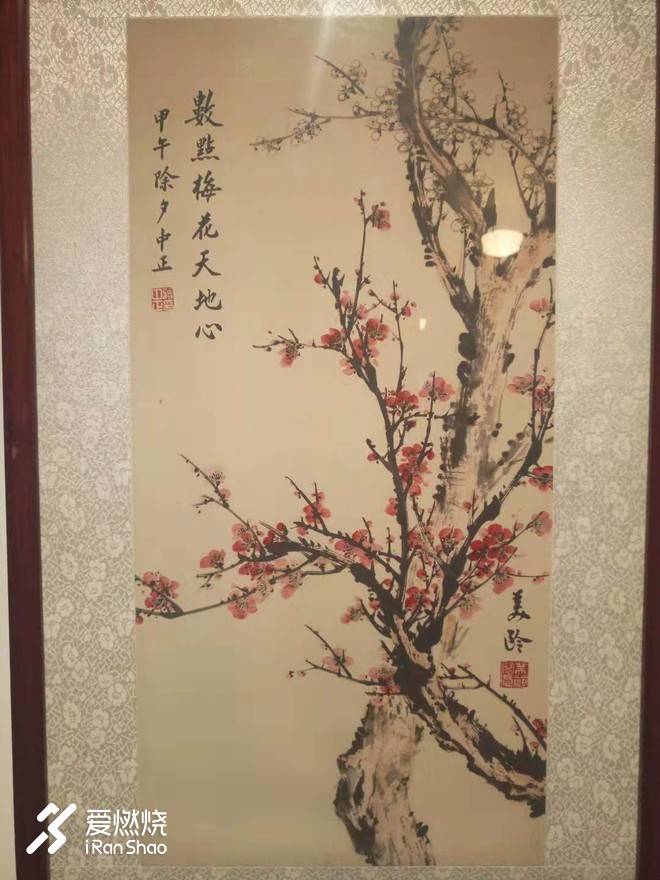 數點梅花天地心
甲午除夕中正
美齡
爱燃烧
iRanShao